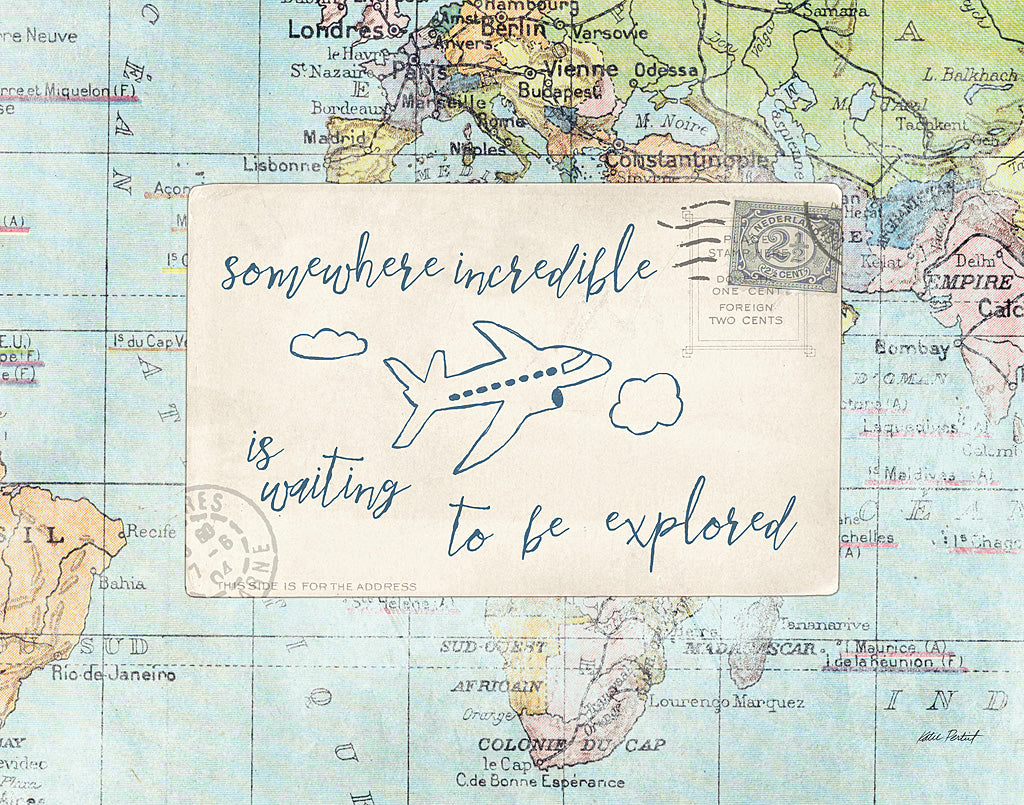 Londres
Hambourg
Berlin
Varsovie
Samara
Anvers
Paris
Vienne
Odessa
Budapest
L. Balkhach
rre Neuve
rce et Miquelon (F)
le Havre
St Nazaire
Bordeaux
Marseille
Rome
M. Noire
Volga
Tachkent
Madrid
Naples
Constantinople
Lisbonne
somewhere incredible
NEDERLAND
2½
(2½ CENT)
ONE CENT
FOREIGN
TWO CENTS
is
waiting
to be explored
THIS SIDE IS FOR THE ADDRESS
AFGHANISTAN
Herat
Kelat
Delhi
EMPIRE
Calc
Bombay
D'OMAN
Laquedives
Is Maldives (A)
Is Chago
chelles
(A)
Is du Cap Ve
Recife
Bahia
SUD
Rio de Janeiro
SUD-OUEST
AFRICAIN
Orange
COLONIE DU CAP
le Cap
C. de Bonne Espérance
Lourenço Marquez
Tananarive
MADAGASCAR
I Maurice (A)
I de la Reunion (F)
I N D